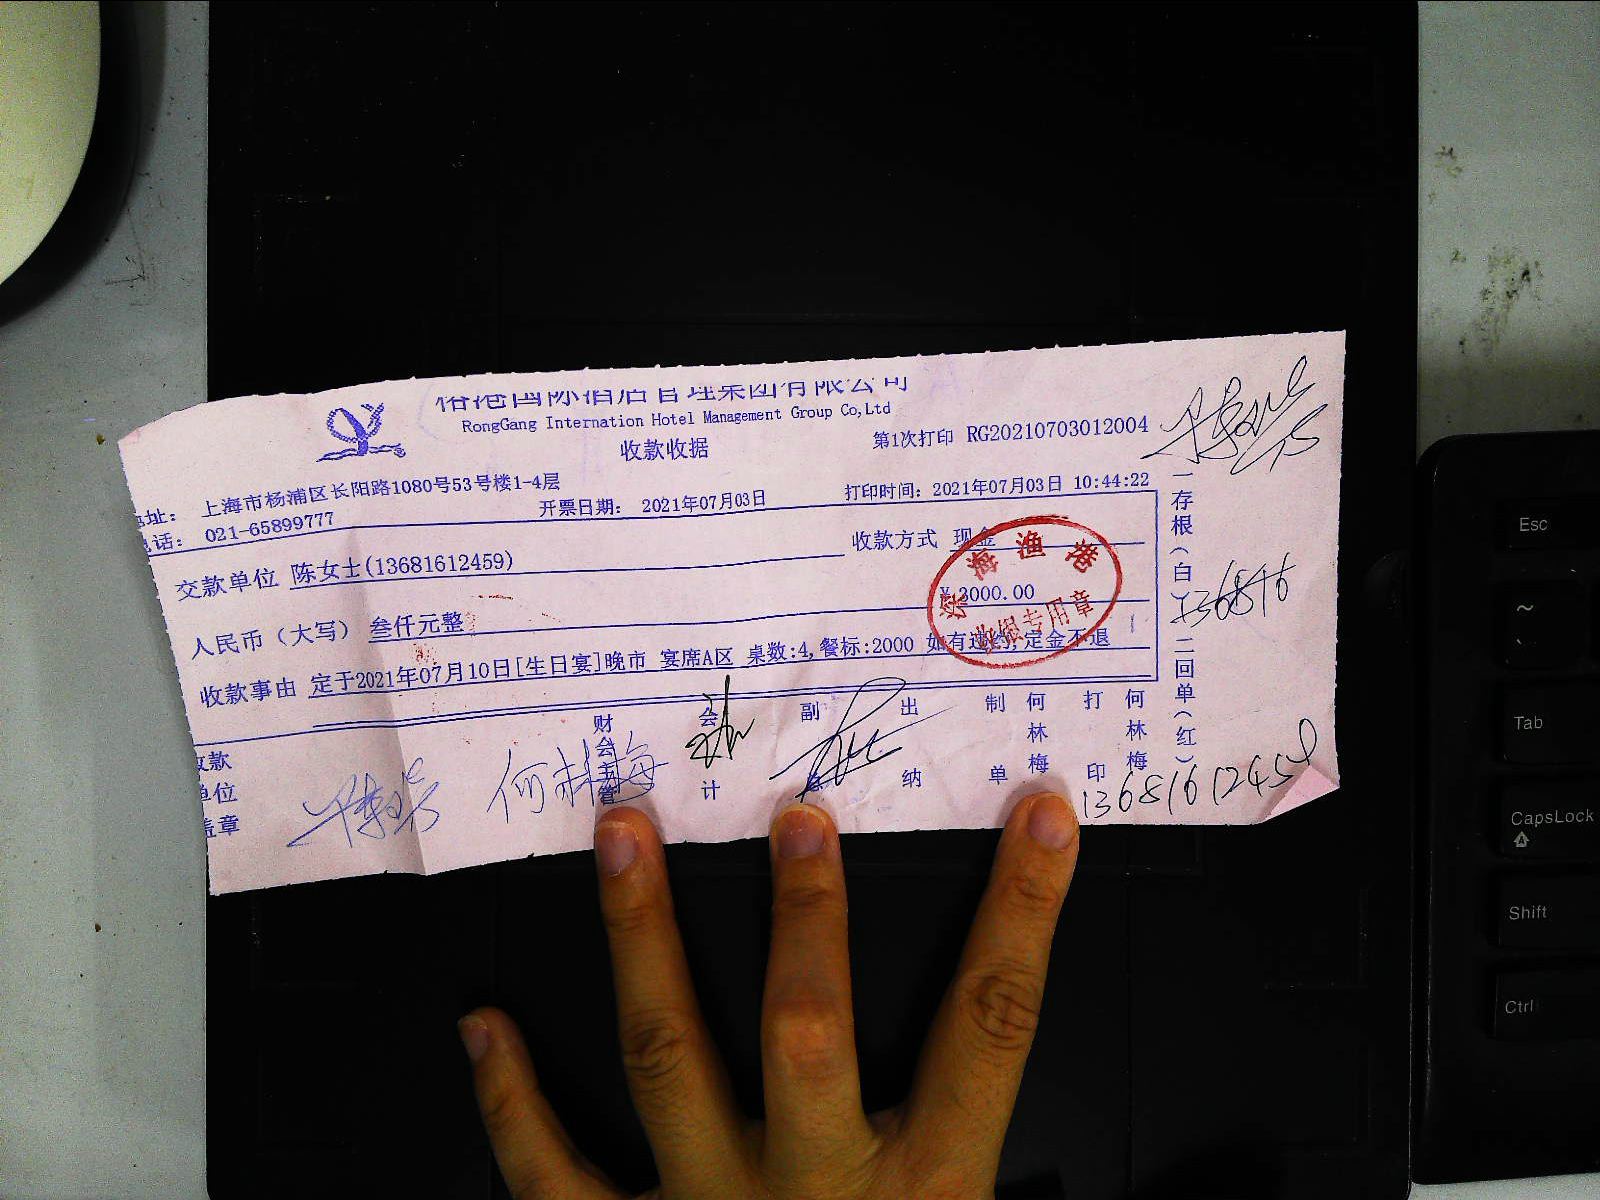 港国际酒店管理集团有限公司
RongGang Internation Hotel Management Group Co,Ltd
收款收据
第1次打印 RG20210703012004
址: 上海市杨浦区长阳路1080号53号楼1-4层
话: 021-65899777
开票日期: 2021年07月03日
打印时间: 2021年07月03日 10:44:22
交款单位 陈女士(13681612459)
收款方式 现金
人民币（大写） 叁仟元整
¥3000.00
收款事由 定于2021年07月10日[生日宴]晚市 宴席A区 桌数:4,餐标:2000 如有违约,定金不退
深海渔港
收银专用章
收款单位盖章
财会主管
会计
副总
出纳
制单
何林梅
打印
何林梅
何林梅
一存根(白) 二回单(红)
136816
13681612459
Esc
~
Tab
CapsLock
Shift
Ctrl